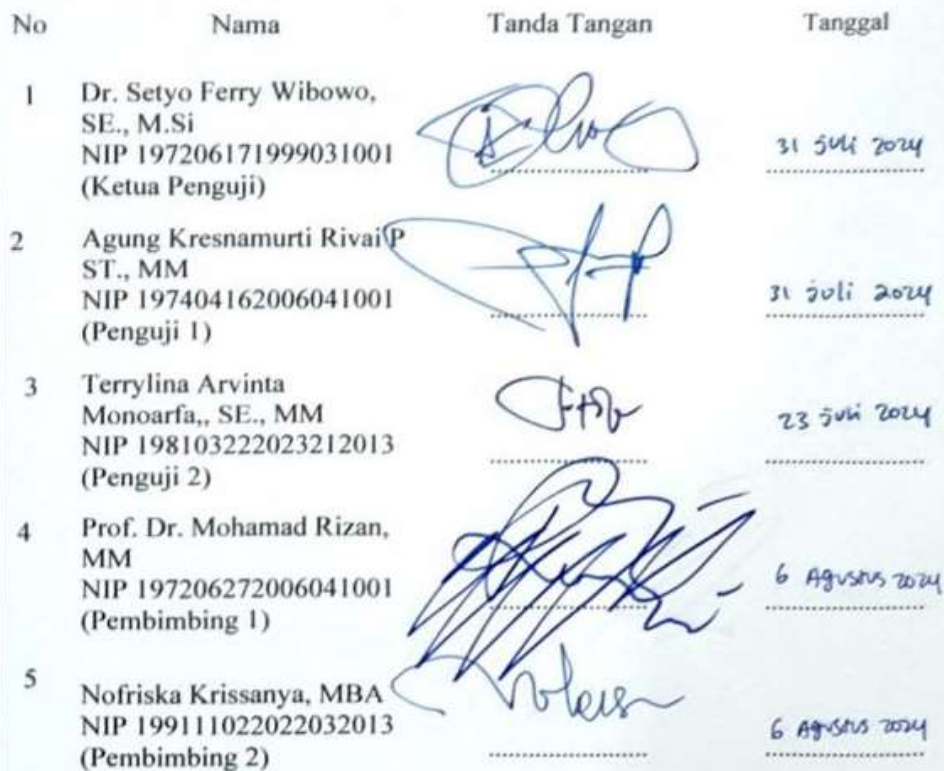 No Nama Tanda Tangan Tanggal
1 Dr. Setyo Ferry Wibowo,
SE., M.Si
NIP 197206171999031001
(Ketua Penguji)
31 Juli 2024
2 Agung Kresnamurti Rivai P
ST., MM
NIP 197404162006041001
(Penguji 1)
31 Juli 2024
3 Terrylina Arvinta
Monoarfa,, SE., MM
NIP 198103222023212013
(Penguji 2)
23 Juli 2024
4 Prof. Dr. Mohamad Rizan,
MM
NIP 197206272006041001
(Pembimbing 1)
6 Agustus 2024
5 Nofriska Krissanya, MBA
NIP 199111022022032013
(Pembimbing 2)
6 Agustus 2024